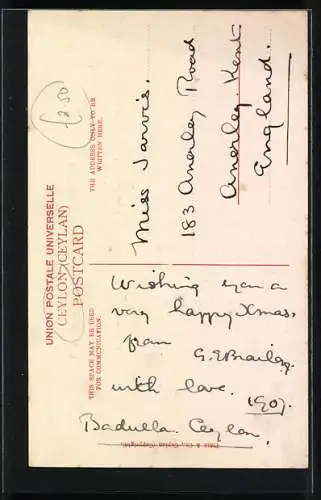 £2.50
UNION POSTALE UNIVERSELLE
CEYLON (CEYLAN)
POSTCARD
THIS SPACE MAY BE USED
FOR COMMUNICATION.
THE ADDRESS ONLY TO BE
WRITTEN HERE.
Wishing you a
very happy Xmas.
from
G. E. Brailey.
with love.
1907.
Badulla. Ceylon.
Plâté & Co., Ceylon (Copyright).
Miss Jarvis.
183 Anerley Road
Anerley. Kent
England.